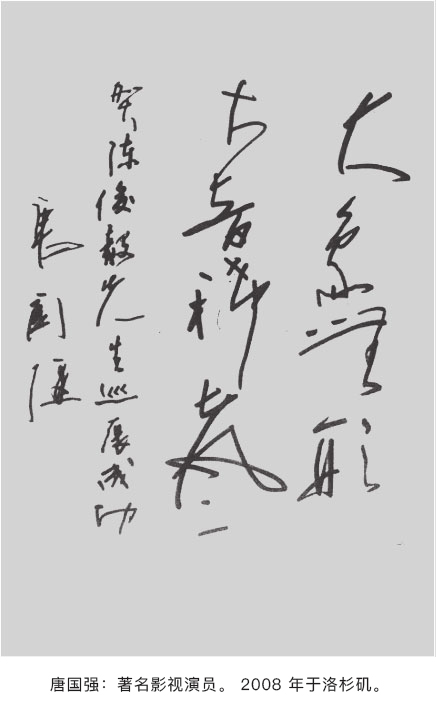 大象無形
大音稀声
贺陈俊毅先生巡展成功
唐国强
唐国强：著名影视演员。 2008 年于洛杉矶。